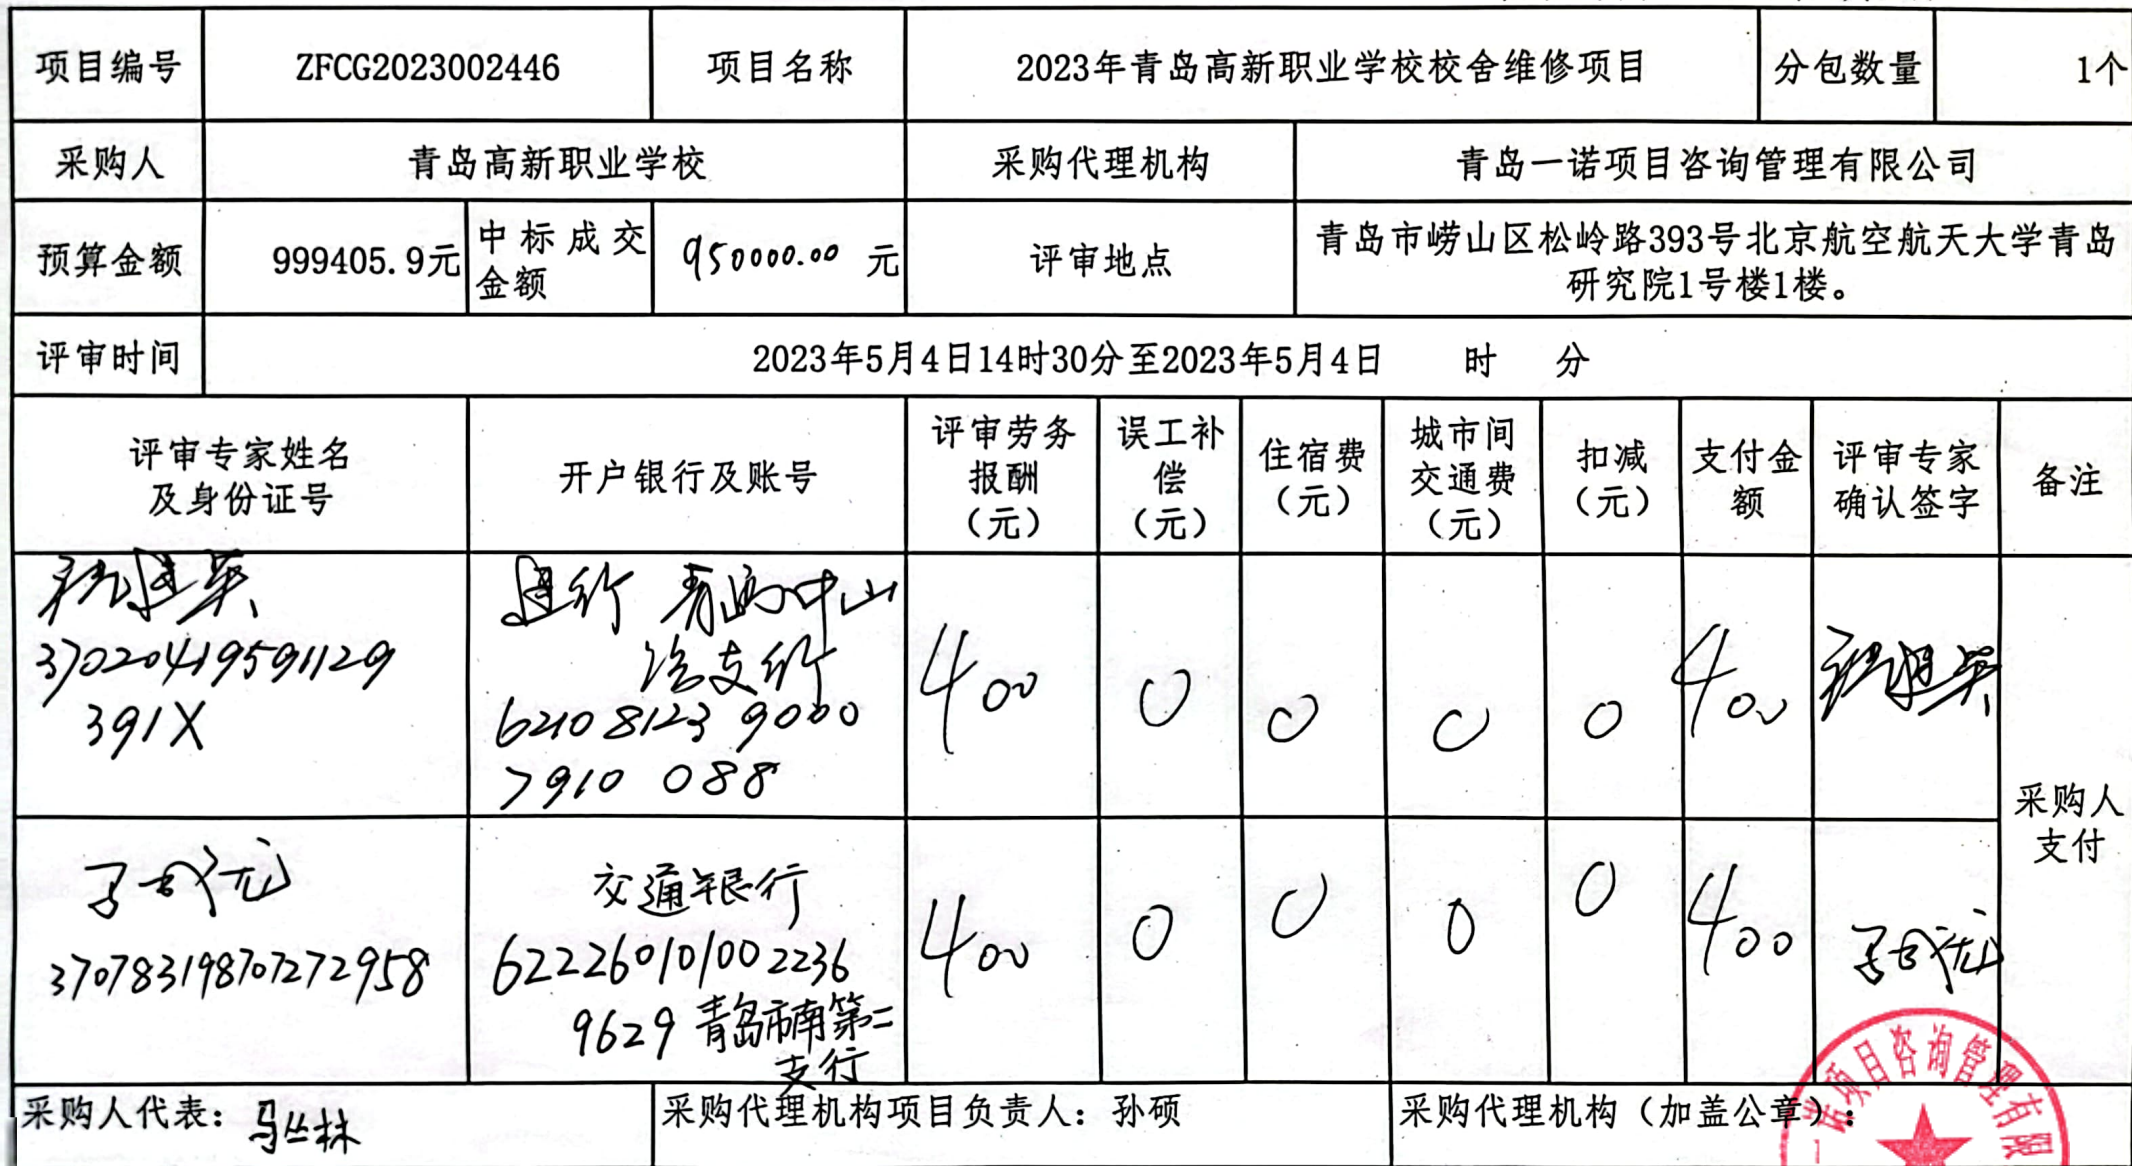 项目编号 ZFCG2023002446 项目名称 2023年青岛高新职业学校校舍维修项目 分包数量 1个
采购人 青岛高新职业学校 采购代理机构 青岛一诺项目咨询管理有限公司
预算金额 999405.9元 中标成交金额 950000.00 元 评审地点 青岛市崂山区松岭路393号北京航空航天大学青岛
研究院1号楼1楼。
评审时间 2023年5月4日14时30分至2023年5月4日 时 分
评审专家姓名
及身份证号
开户银行及账号
评审劳务
报酬
(元)
误工补
偿
(元)
住宿费
(元)
城市间
交通费
(元)
扣减
(元)
支付金
额
评审专家
确认签字
备注
建英
37020419591129
391X
建行 青岛中山
路支行
62108123 9000
7910 088
400 0 0 0 0 400
采购人
支付
370783198707272958
交通银行
622260101002236
9629 青岛市南第二
支行
400 0 0 0 0 400
采购人代表：马丛林 采购代理机构项目负责人：孙硕 采购代理机构（加盖公章）：
一诺项目咨询管理有限